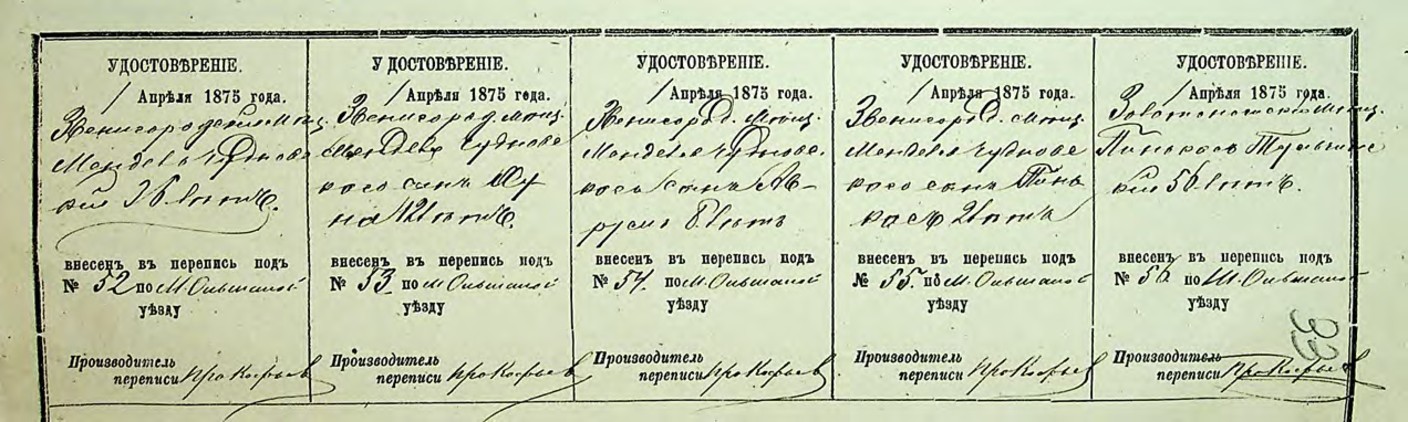 УДОСТОВѢРЕНІЕ.
1 Апрѣля 1875 года.
Звенигородскій Мѣщ.
Мендель Чудновс
кій 36 лѣтъ.
внесенъ въ перепись подъ
№ 52 по М. Ольшаной
уѣзду
Производитель
переписи Прокофьев
УДОСТОВѢРЕНІЕ.
1 Апрѣля 1875 года.
Звенигород. мѣщ.
Менделя Чуднове
каго сынъ
на 12 лѣтъ.
внесенъ въ перепись подъ
№ 53. по М. Ольшаной
уѣзду
Производитель
переписи Прокофьев
УДОСТОВѢРЕНІЕ.
1 Апрѣля 1875 года.
Звенигород. мѣщ.
Менделя Чуднове
каго сынъ Ав-
румъ 8 лѣтъ
внесенъ въ перепись подъ
№ 54. по М. Ольшаной
уѣзду
Производитель
переписи Прокофьев
УДОСТОВѢРЕНІЕ.
1 Апрѣля 1875 года.
Звенигород. мѣщ.
Менделя Чуднове
каго сынъ Пинь
касъ 2 лѣтъ
внесенъ въ перепись подъ
№ 55. по М. Ольшаной
уѣзду
Производитель
переписи Прокофьев
УДОСТОВѢРЕНІЕ.
1 Апрѣля 1875 года.
Золотоношскій Мѣщ.
Пинькасъ
кій 56 лѣтъ.
внесенъ въ перепись подъ
№ 56. по М. Ольшаной
уѣзду
Производитель
переписи Прокофьев
33